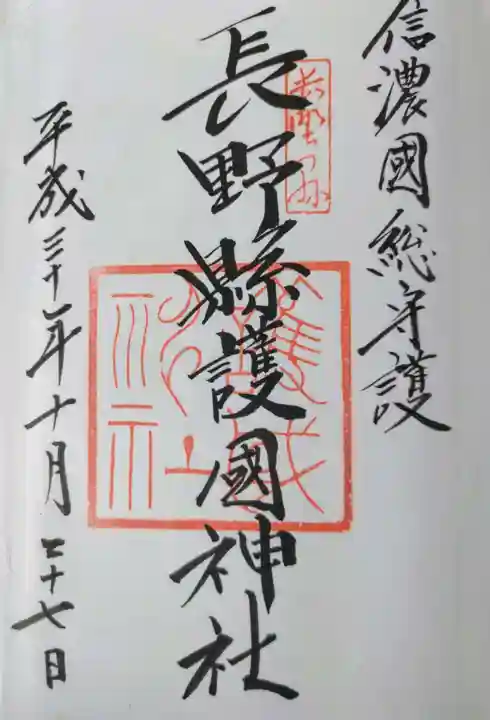 信濃國総守護
長野縣護國神社
平成三十一年十月二十七日